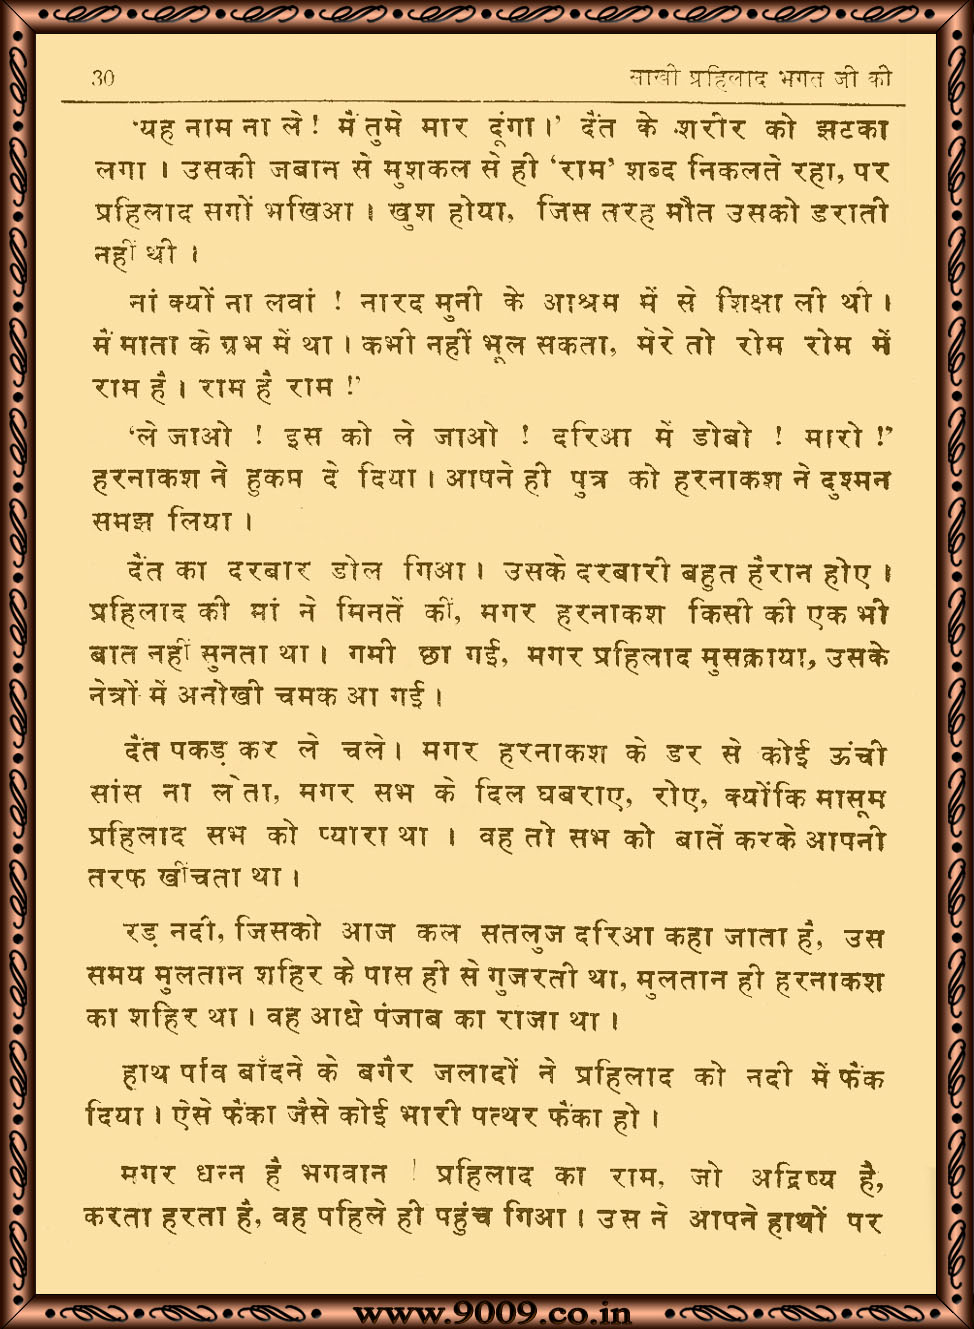 30 साखी प्रहिलाद भगत जी की
'यह नाम ना ले! मैं तुमे मार दूंगा।' दैंत के शरीर को झटका
लगा । उसकी जबान से मुशकल से ही 'राम' शब्द निकलते रहा, पर
प्रहिलाद सगों भखिआ । खुश होया, जिस तरह मौत उसको डराती
नहीं थी ।
नां क्यों ना लवां ! नारद मुनी के आश्रम में से शिक्षा ली थी ।
मैं माता के ग्रभ में था । कभी नहीं भूल सकता, मेरे तो रोम रोम में
राम है । राम है राम !'
'ले जाओ ! इस को ले जाओ ! दरिआ में डोबो ! मारो !'
हरनाकश ने हुकम दे दिया । आपने ही पुत्र को हरनाकश ने दुश्मन
समझ लिया ।
दैंत का दरबार डोल गिआ । उसके दरबारी बहुत हैरान होए ।
प्रहिलाद की मां ने मिनतें कीं, मगर हरनाकश किसी की एक भी
बात नहीं सुनता था । गमी छा गई, मगर प्रहिलाद मुसक्राया, उसके
नेत्रों में अनोखी चमक आ गई ।
दैंत पकड़ कर ले चले । मगर हरनाकश के डर से कोई ऊंची
सांस ना लेता, मगर सभ के दिल घबराए, रोए, क्योंकि मासूम
प्रहिलाद सभ को प्यारा था । वह तो सभ को बातें करके आपनी
तरफ खींचता था ।
रड़ नदी, जिसको आज कल सतलुज दरिआ कहा जाता है, उस
समय मुलतान शहिर के पास ही से गुजरती था, मुलतान ही हरनाकश
का शहिर था । वह आधे पंजाब का राजा था ।
हाथ पांव बाँदने के बगैर जलादों ने प्रहिलाद को नदी में फैंक
दिया । ऐसे फैंका जैसे कोई भारी पत्थर फैंका हो ।
मगर धन्न है भगवान ! प्रहिलाद का राम, जो अद्रिष्य है,
करता हरता है, वह पहिले ही पहुंच गिआ । उस ने आपने हाथों पर
www.9009.co.in